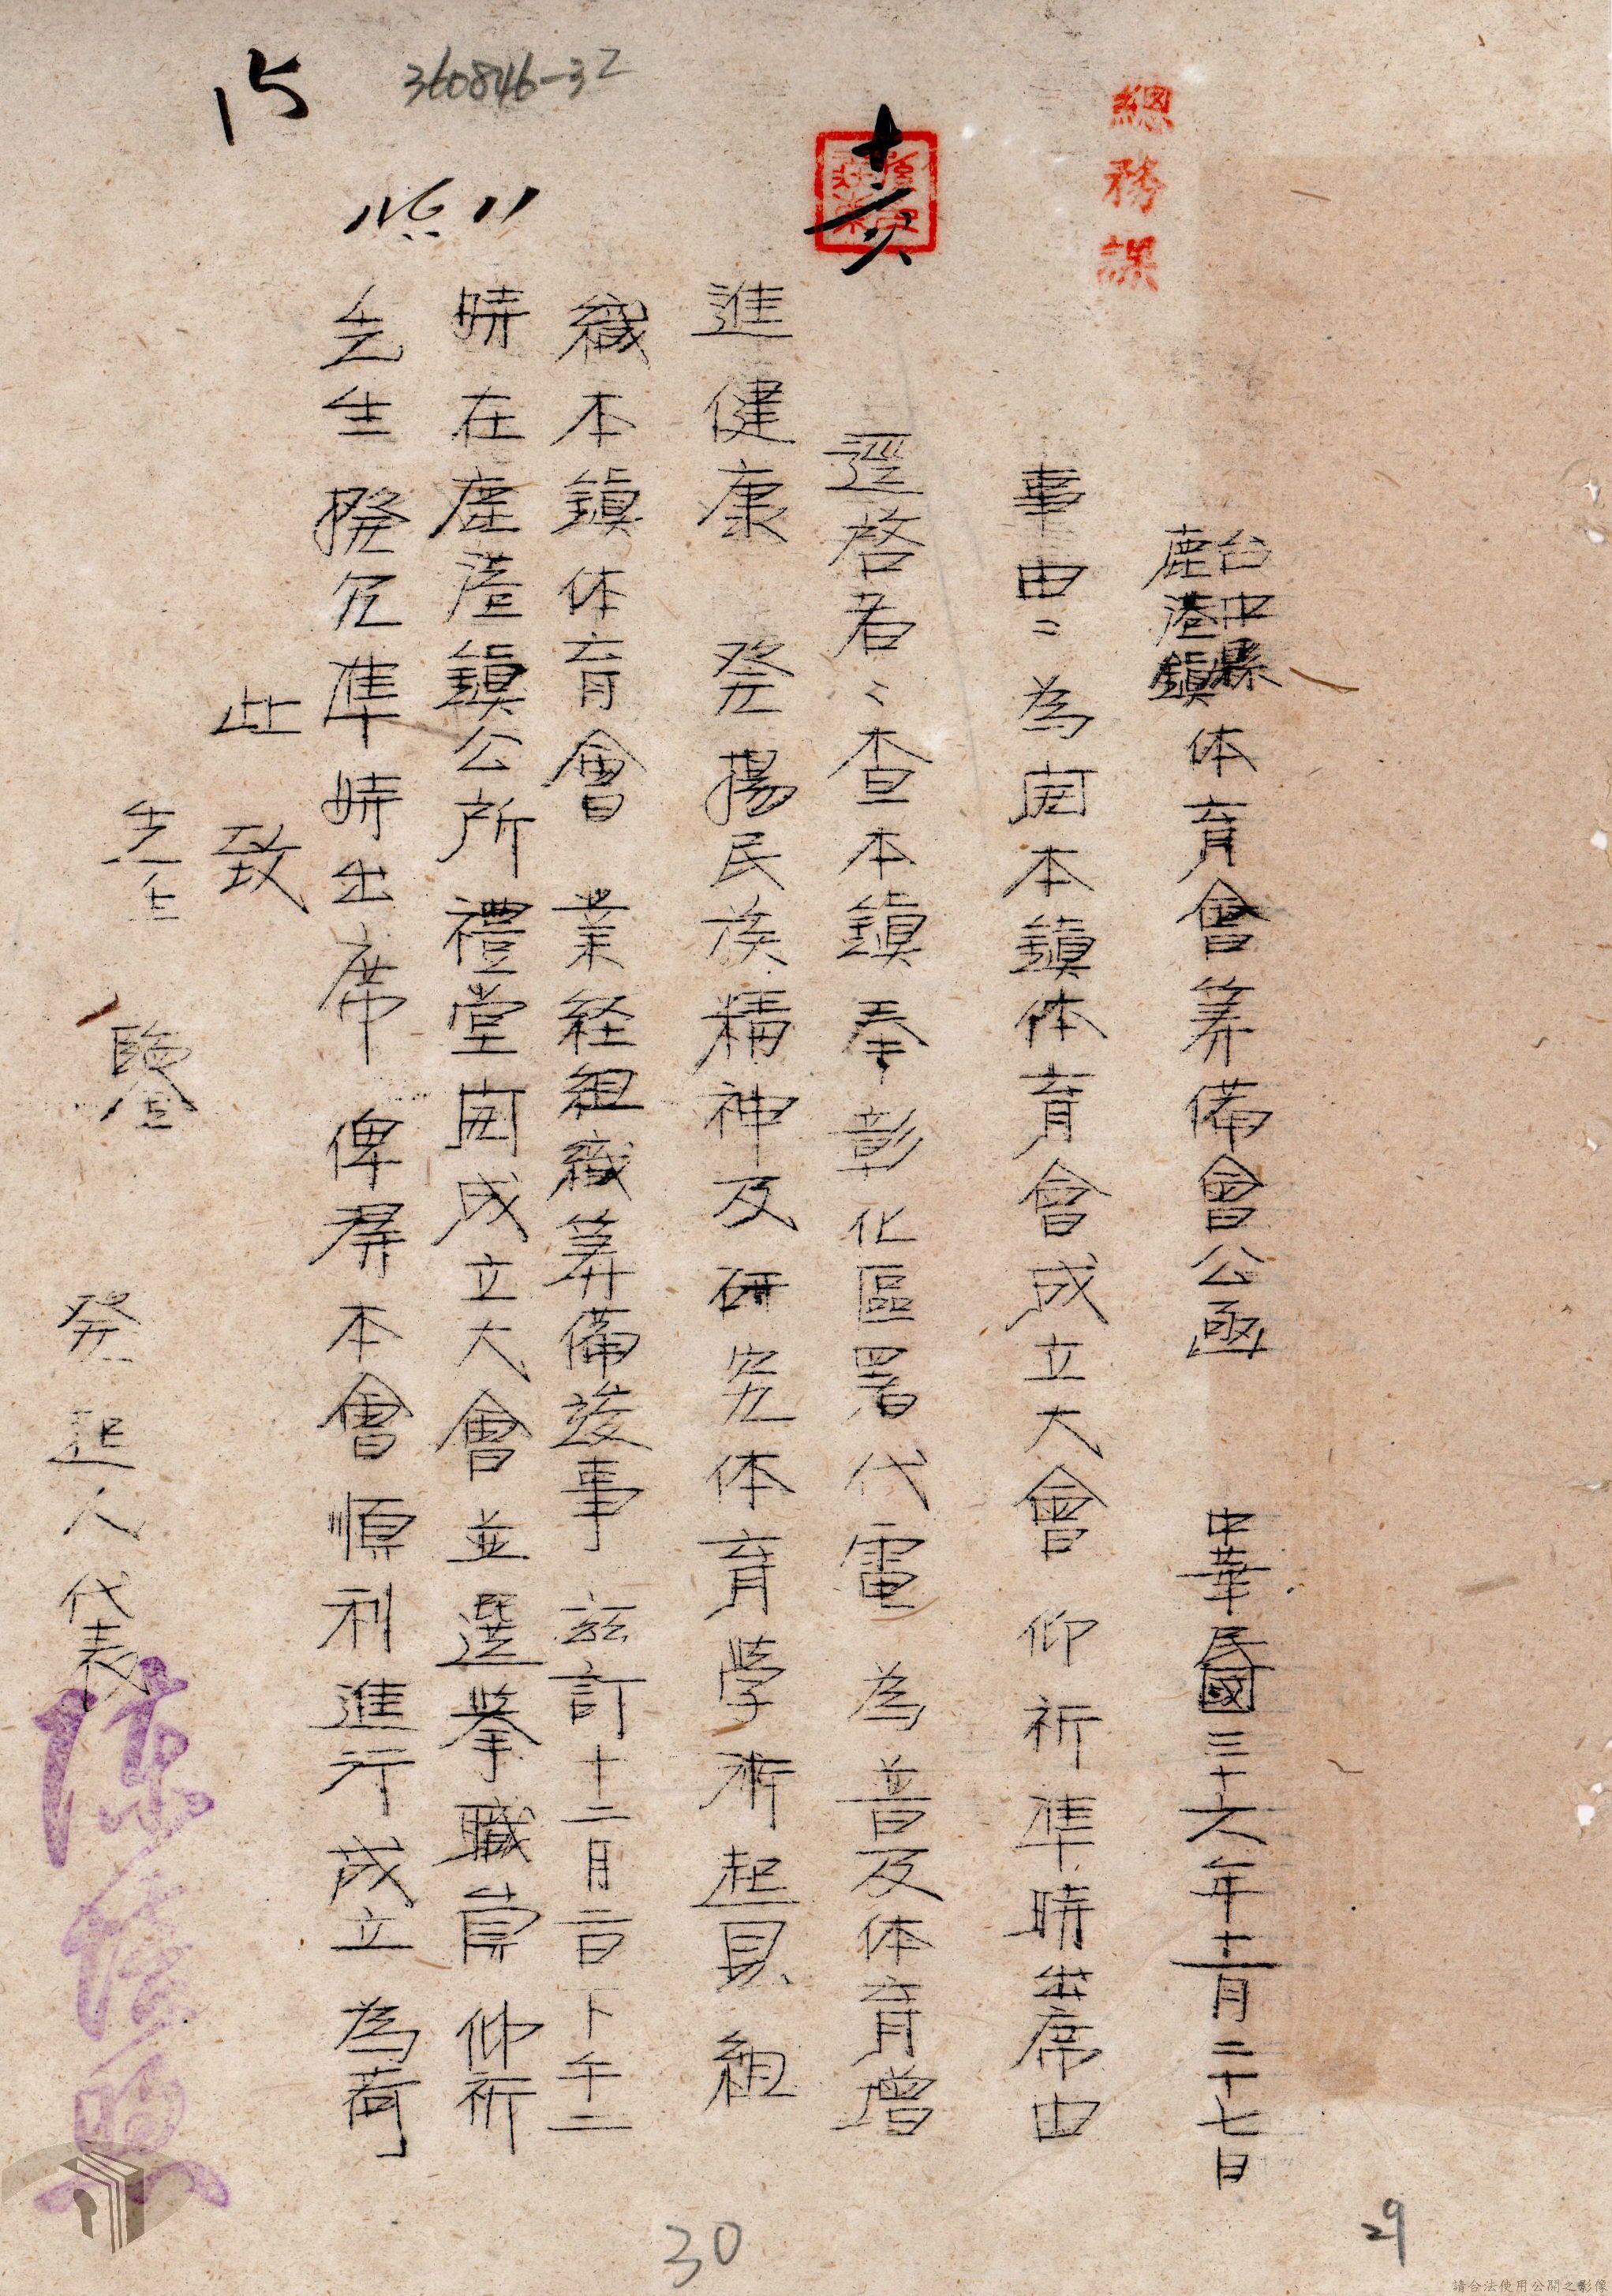 總務課
台中縣
鹿港鎮体育會筹備會公函 中華民國三十六年十一月二十七日
事由:為開本鎮体育會成立大會 仰祈準時出席由
逕啓者:查本鎮奉彰化區署代電 為普及体育增
進健康 発揚民族精神及研究体育學術起見 組
織本鎮体育會 業経組織筹備竣事 茲訂十二月二日下午二
時在鹿港鎮公所禮堂開成立大會並選挙職員 仰祈
先生撥冗準時出席 俾得本會順利進行成立 為荷
此致
先生 鑒
発起人代表
15
360846-32
30
29
請合法使用公開之影像